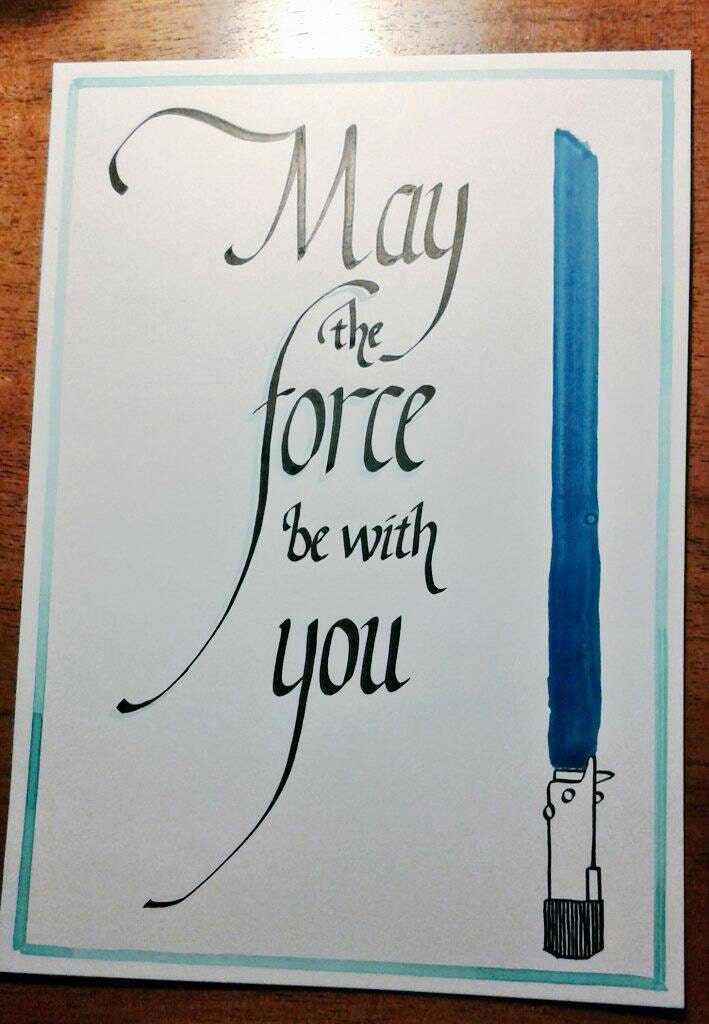 May
the
force
be with
you